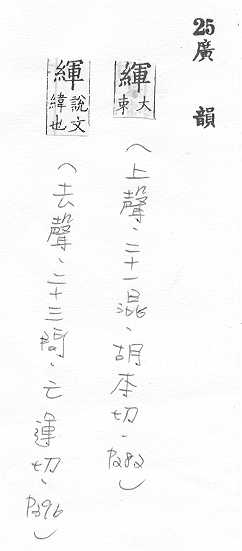 25廣韻
緷 大束
(上聲、二十一混、胡本切、P282)
緷 說文緯也
(去聲、二十三問、亡運切、P396)